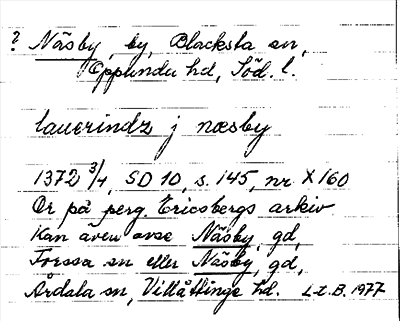 ? Näsby, by, Blacksta sn,
Oppunda hd, Söd. l.
lauerindz j næsby
1372 3/4, SD 10, s. 145, nr X 160
Or på perg. Ericsbergs arkiv
Kan även avse Näsby, gd,
Forssa sn eller Näsby, gd,
Årdala sn, Villåttinge hd. L.t.B. 1977